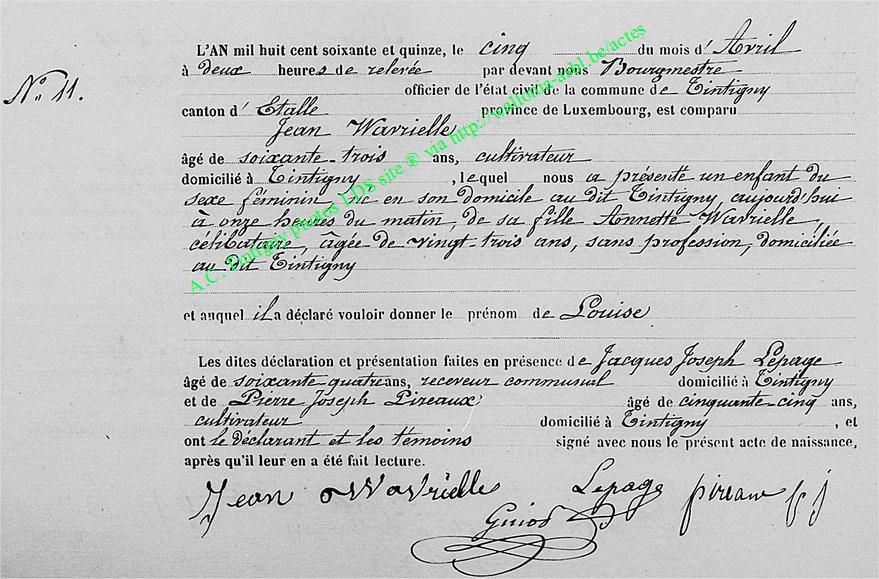 N° 11.
L'AN mil huit cent soixante et quinze, le cinq du mois d'Avril
à deux heures de relevée par devant nous Bourgmestre
officier de l'état civil de la commune de Tintigny
canton d'Etalle province de Luxembourg, est comparu
Jean Wavrielle
âgé de soixante-trois ans, cultivateur
domicilié à Tintigny, lequel nous a présenté un enfant du
sexe féminin né en son domicile au dit Tintigny, aujourd'hui
à onze heures du matin, de sa fille Annette Wavrielle,
célibataire, âgée de vingt-trois ans, sans profession, domiciliée
au dit Tintigny
et auquel il a déclaré vouloir donner le prénom de Louise
Les dites déclaration et présentation faites en présence de Jacques Joseph Lepage
âgé de soixante-quatre ans, receveur communal domicilié à Tintigny
et de Pierre Joseph Pireaux âgé de cinquante-cinq ans,
cultivateur domicilié à Tintigny, et
ont le déclarant et les témoins signé avec nous le présent acte de naissance,
après qu'il leur en a été fait lecture.
Jean Wavrielle Lepage pireaux pj
Guiot
A.C. Tintigny photos LDS site ® via http://wallonia-asbl.be/actes